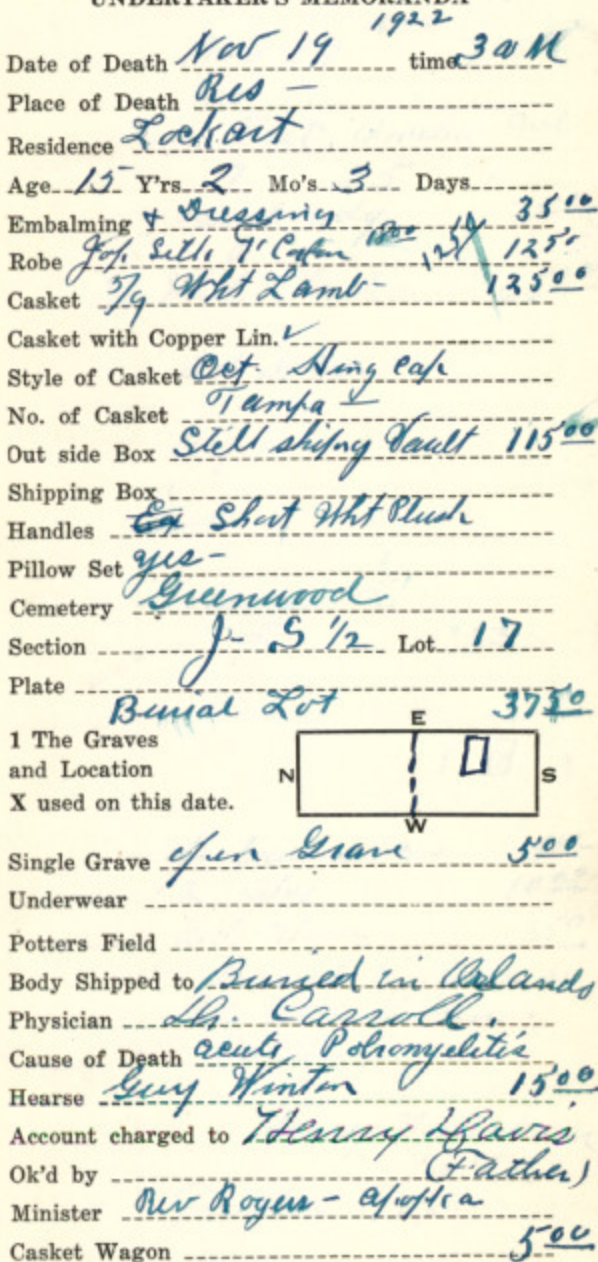 UNDERTAKER'S MEMORANDA
1922
Date of Death Nov 19 time 3 a M
Place of Death Res -
Residence Lockart
Age 15 Y'rs 2 Mo's 3 Days
Embalming & Dressing 35 00
Robe 12 5
Casket 5/9 Wht Lamb - 125 00
Casket with Copper Lin. ✓
Style of Casket Oct. Hing Cap
No. of Casket Tampa -
Out side Box Still Vault 115 00
Shipping Box
Handles Short Wht Plush
Pillow Set yes -
Cemetery Greenwood
Section J - S 1/2 Lot 17
Plate
Burial Lot 37 50
1 The Graves
and Location
X used on this date.
E
N
S
W
Single Grave open Grave 5 00
Underwear
Potters Field
Body Shipped to Buried in Orlando
Physician Dr. Carroll.
Cause of Death acute Polionyelitis
Hearse Guy Winton 15 00
Account charged to Henry Davis
Ok'd by (Father)
Minister Rev Rogers - Apopka
Casket Wagon 5 00